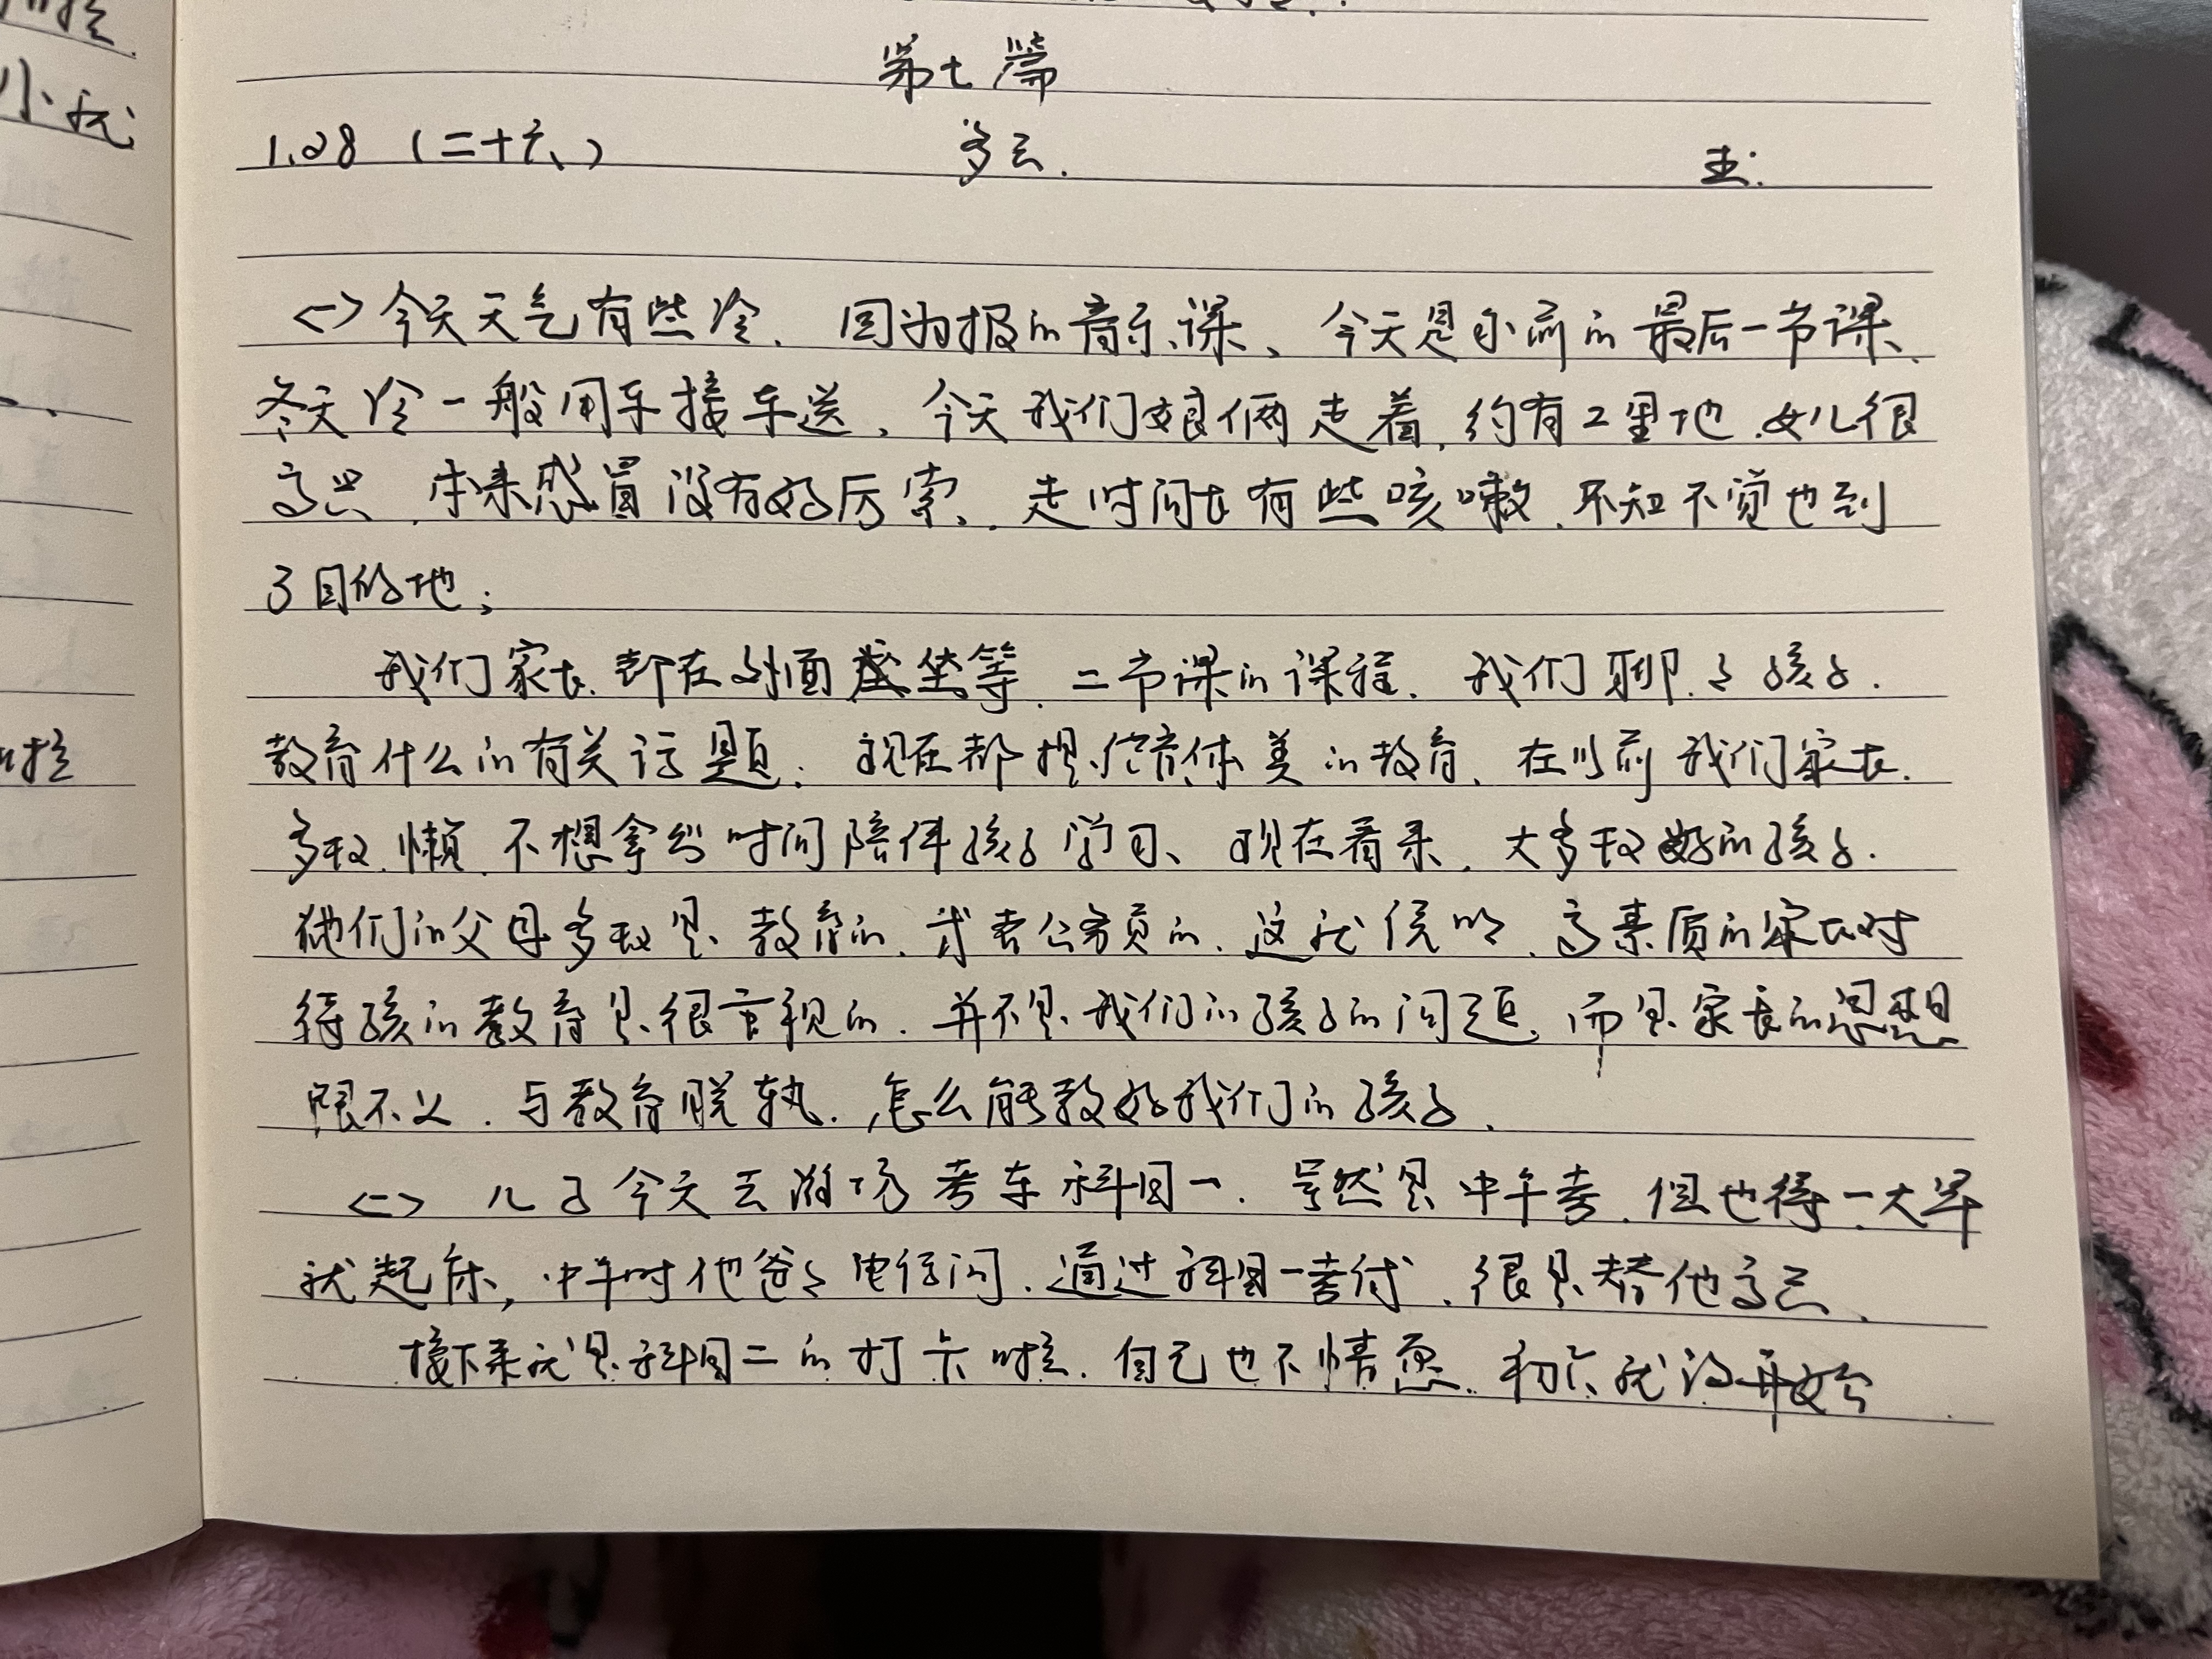 第七篇
1.28 (二十六) 多云. 五:
<一>今天天气有些冷. 因为报的音乐课、今天是年前的最后一节课、
冬天冷一般用车接车送、今天我们娘俩走着.约有2里地.女儿很
高兴.本来感冒没有好利索.走时间长有些咳嗽.不知不觉也到
了目的地;
我们家长.都在外面坐等.二节课的课程.我们聊了孩子.
教育什么的有关话题.现在都提倡德体美的教育.在当前我们家长.
多数.懒.不想拿出时间陪伴孩子学习、现在看来.大多数好的孩子.
他们的父母多数是.教育的.或者公务员的.这就说明.高素质的家长对
待孩的教育是很重视的.并不是.我们的孩子的问题.而是家长的思想
跟不上.与教育脱轨.怎么能教好我们的孩子.
<二> 儿子今天去潍坊考车科目一.虽然是中午考.但也得一大早
就起床,中午时他爸爸电话问.通过科目一考试.很是替他高兴.
接下来就是.科目二的打卡啦.自己也不情愿.初六就没开始